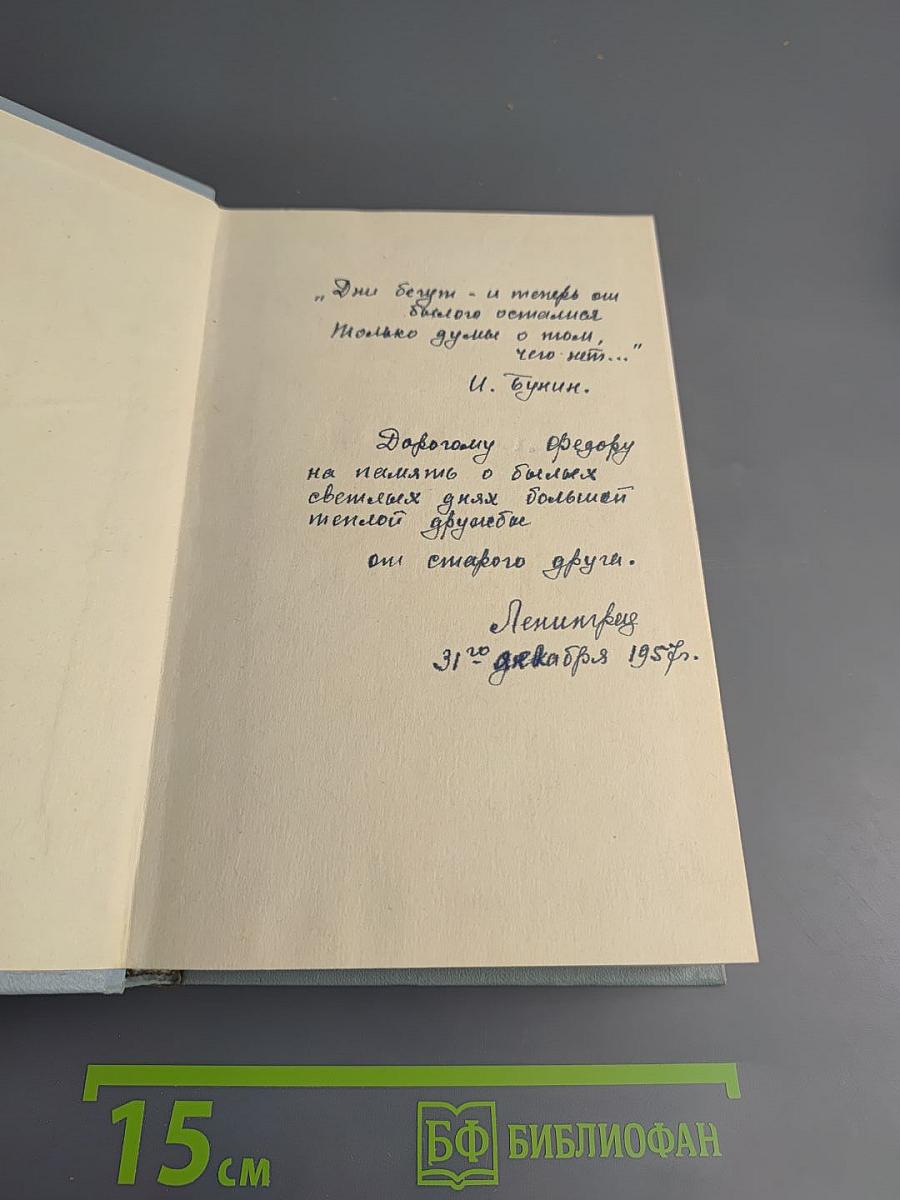 „Дни бегут - и теперь от
былого осталися
Только думы о том,
чего нет..."
И. Бунин.
Дорогому Федору
на память о былых
светлых днях большой
теплой дружбы
от старого друга.
Ленинград
31го декабря 1957г.
15 см
БФ БИБЛИОФАН